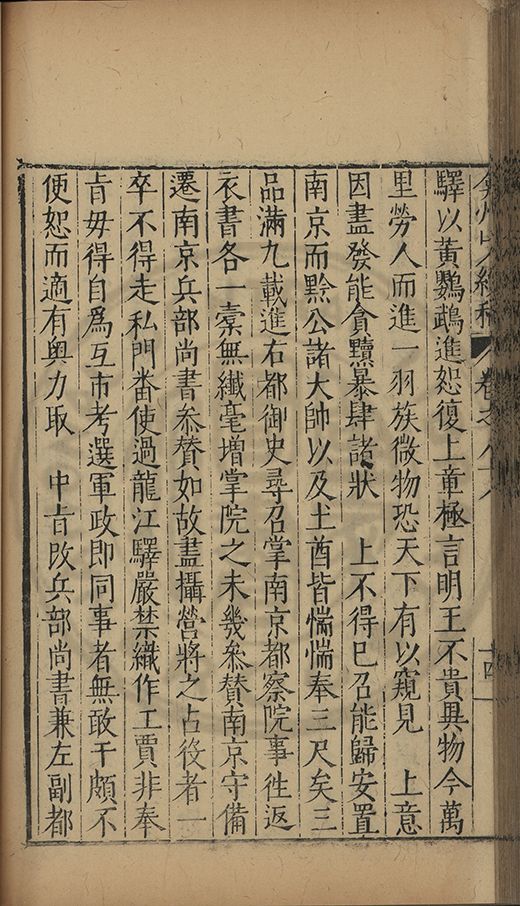 弇州山人續稿 卷之八十八 十四
驛以黃鸚鵡進恕復上章極言明王不貴異物今萬
里勞人而進一羽族微物恐天下有以窺見 上意
因盡發能貪黷暴肆諸狀 上不得已召能歸安置
南京而黔公諸大帥以及土酋皆惴惴奉三尺矣三
品滿九載進右都御史尋召掌南京都察院事徃返
衣書各一橐無纎毫增掌院之未幾叅贊南京守備
遷南京兵部尚書叅賛如故盡攝營將之占役者一
卒不得走私門畨使過龍江驛嚴禁織作工賈非奉
㫖毋得自爲互市考選軍政即同事者無敢干頗不
便恕而適有與力取 中㫖改兵部尚書兼左副都